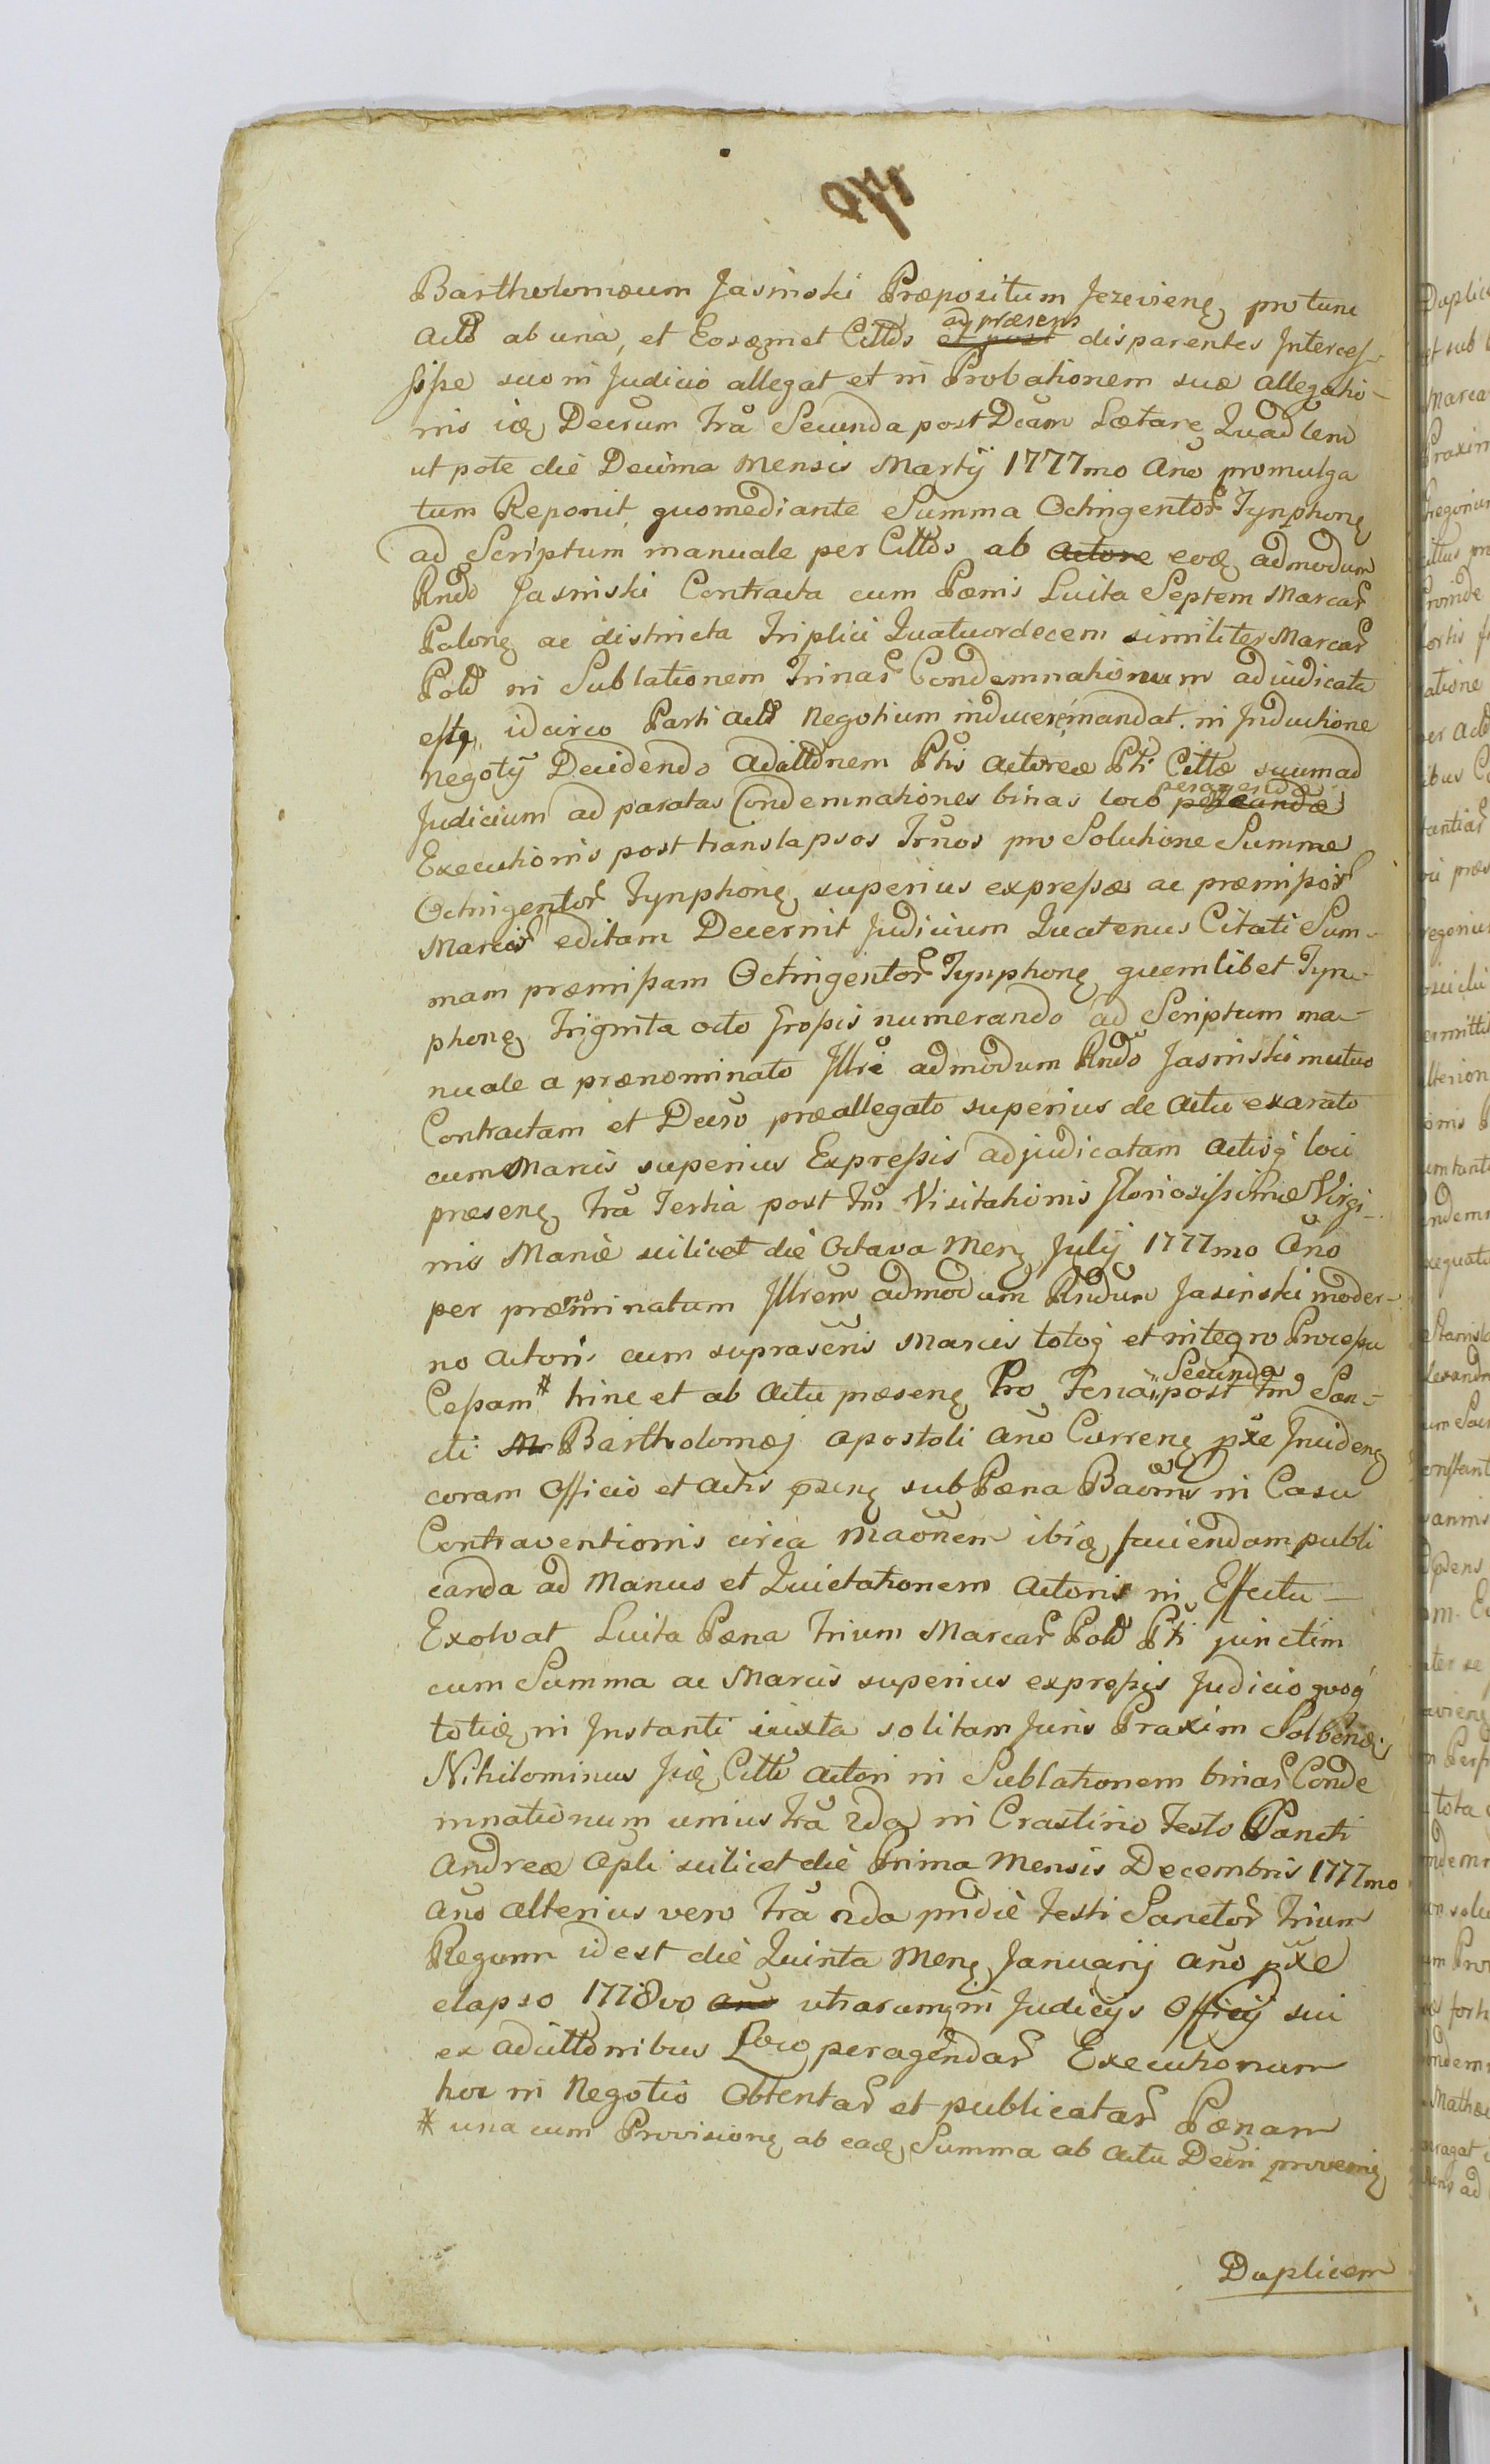 Bartholomæum Jasinski Præpositum Jezeviens, pro tunc
Actts ab una, et Eosdemet Citts ad præsens et post disparentes Interces-
sisse suo in Judicio allegat et in Probationem suæ allegatio-
nis idq Decrum fra Secunda post Dcam Lætare Quadlem
ut pote die Decima Mensis Martij 1777mo Ano promulga
tum Reponit, quo mediante Summa Octingentor Tynphonq
ad Scriptum manuale per Citts ab Actore eodq admodum
Rndo Jasinski Contracta cum Pœnis Luita Septem Marcar
Polonq ac districta Triplici Quatuordecem similiter Marcar
Pold in Sublationem Trinar Condemnationum adiudicata
est, idcirco Parti Actt Negotium inducere mandat. in Inductione
Negotij Decidendo Adcittonem Ptis Actoreæ Pti Cittæ suum ad
Judicium ad paratas Condemnationes binas loco peragendæ
Executionis post translapsos Trnos pro Solutione Summæ
Octingentor Tynphonq superius expressæ ac præmissor
Marcar editam Decernit Judicium Quatenus Citati Sum-
mam præmissam Octingentor Tynphonq quemlibet Tyn-
phonq Triginta octo grossis numerando ad Scriptum ma-
nuale a prænominato Illri admodum Rndo Jasinski mutuo
Contractam et Decro præallegato superius de Actu exarato
cum Marcis superius Expressis adjudicatam Actisq loci
præsenq fra Tertia post fm Visitationis Gloriosissimæ Virgi-
nis Mariæ scilicet die Octava Menq Julij 1777mo Ano
per prænominatum Illrem admodum Rndum Jasinski moder-
no Actori cum suprascris Marcis totoq et integro Processu
Cessam * hinc et ab Actu præsenq Pro Feria Secunda post fm San-
cti Bartholomæj Apostoli Ano Currenq pxe Incidenq
coram Officio et Actis præsenq sub Pœna Baonis in Casu
Contraventionis circa Maonem ibidq faciendam publi
canda ad Manus et Quietationem Actoris in Effectu —
Exolvat Luita Pœna trium Marcar Pold Pti junctim
cum Summa ac Marcis superius expressis Judicio quoq
totidq in Instanti iuxta solitam Juris Praxim Solvendq
Nihilominus Iidq Citti Actori in Sublationem binar Conde
mnationum unius fra 2da in Crastino Festo Sancti
Andreæ Apli scilicet die Prima Mensis Decembris 1777mo
Ano alterius vero fra 2da pridie Festi Sanctor Trium
Regum idest die Quinta Menq Januarij Ano pxe
elapso 1778vo Ano utrarumq in Judicijs Officij sui
ex adcittonibus Loco peragendar Executionum
hoc in Negotio Obtentar et publicatar Pœnam
* una cum Provisionq ab eadq Summa ab Actu Decri provenienq
Duplicem